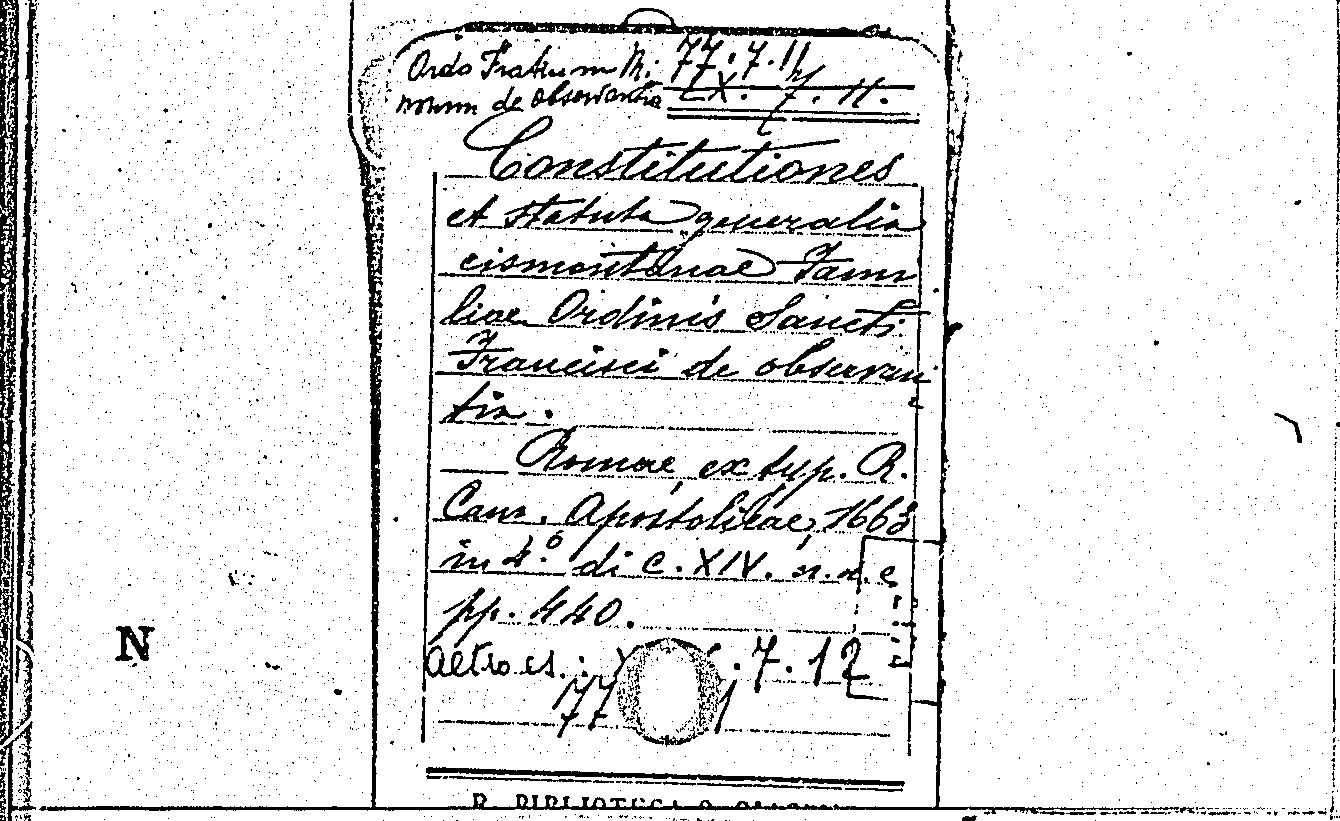 Ordo Fratrum M: 77.7.11
norum de observantia LX. 7. 11.
Constitutiones
et statuta generalia
cismontanae Fami
liae Ordinis Sancti
Francisci de observan
tia.
Romae, ex typ. R.
Cam. Apostolicae, 1663
in 4.º di c. XIV. n.n. e
pp. 440.
altro es.: .7.12
77
N
R. BIBLIOTECA